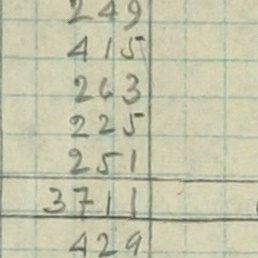 249
415
263
225
251
3711
429